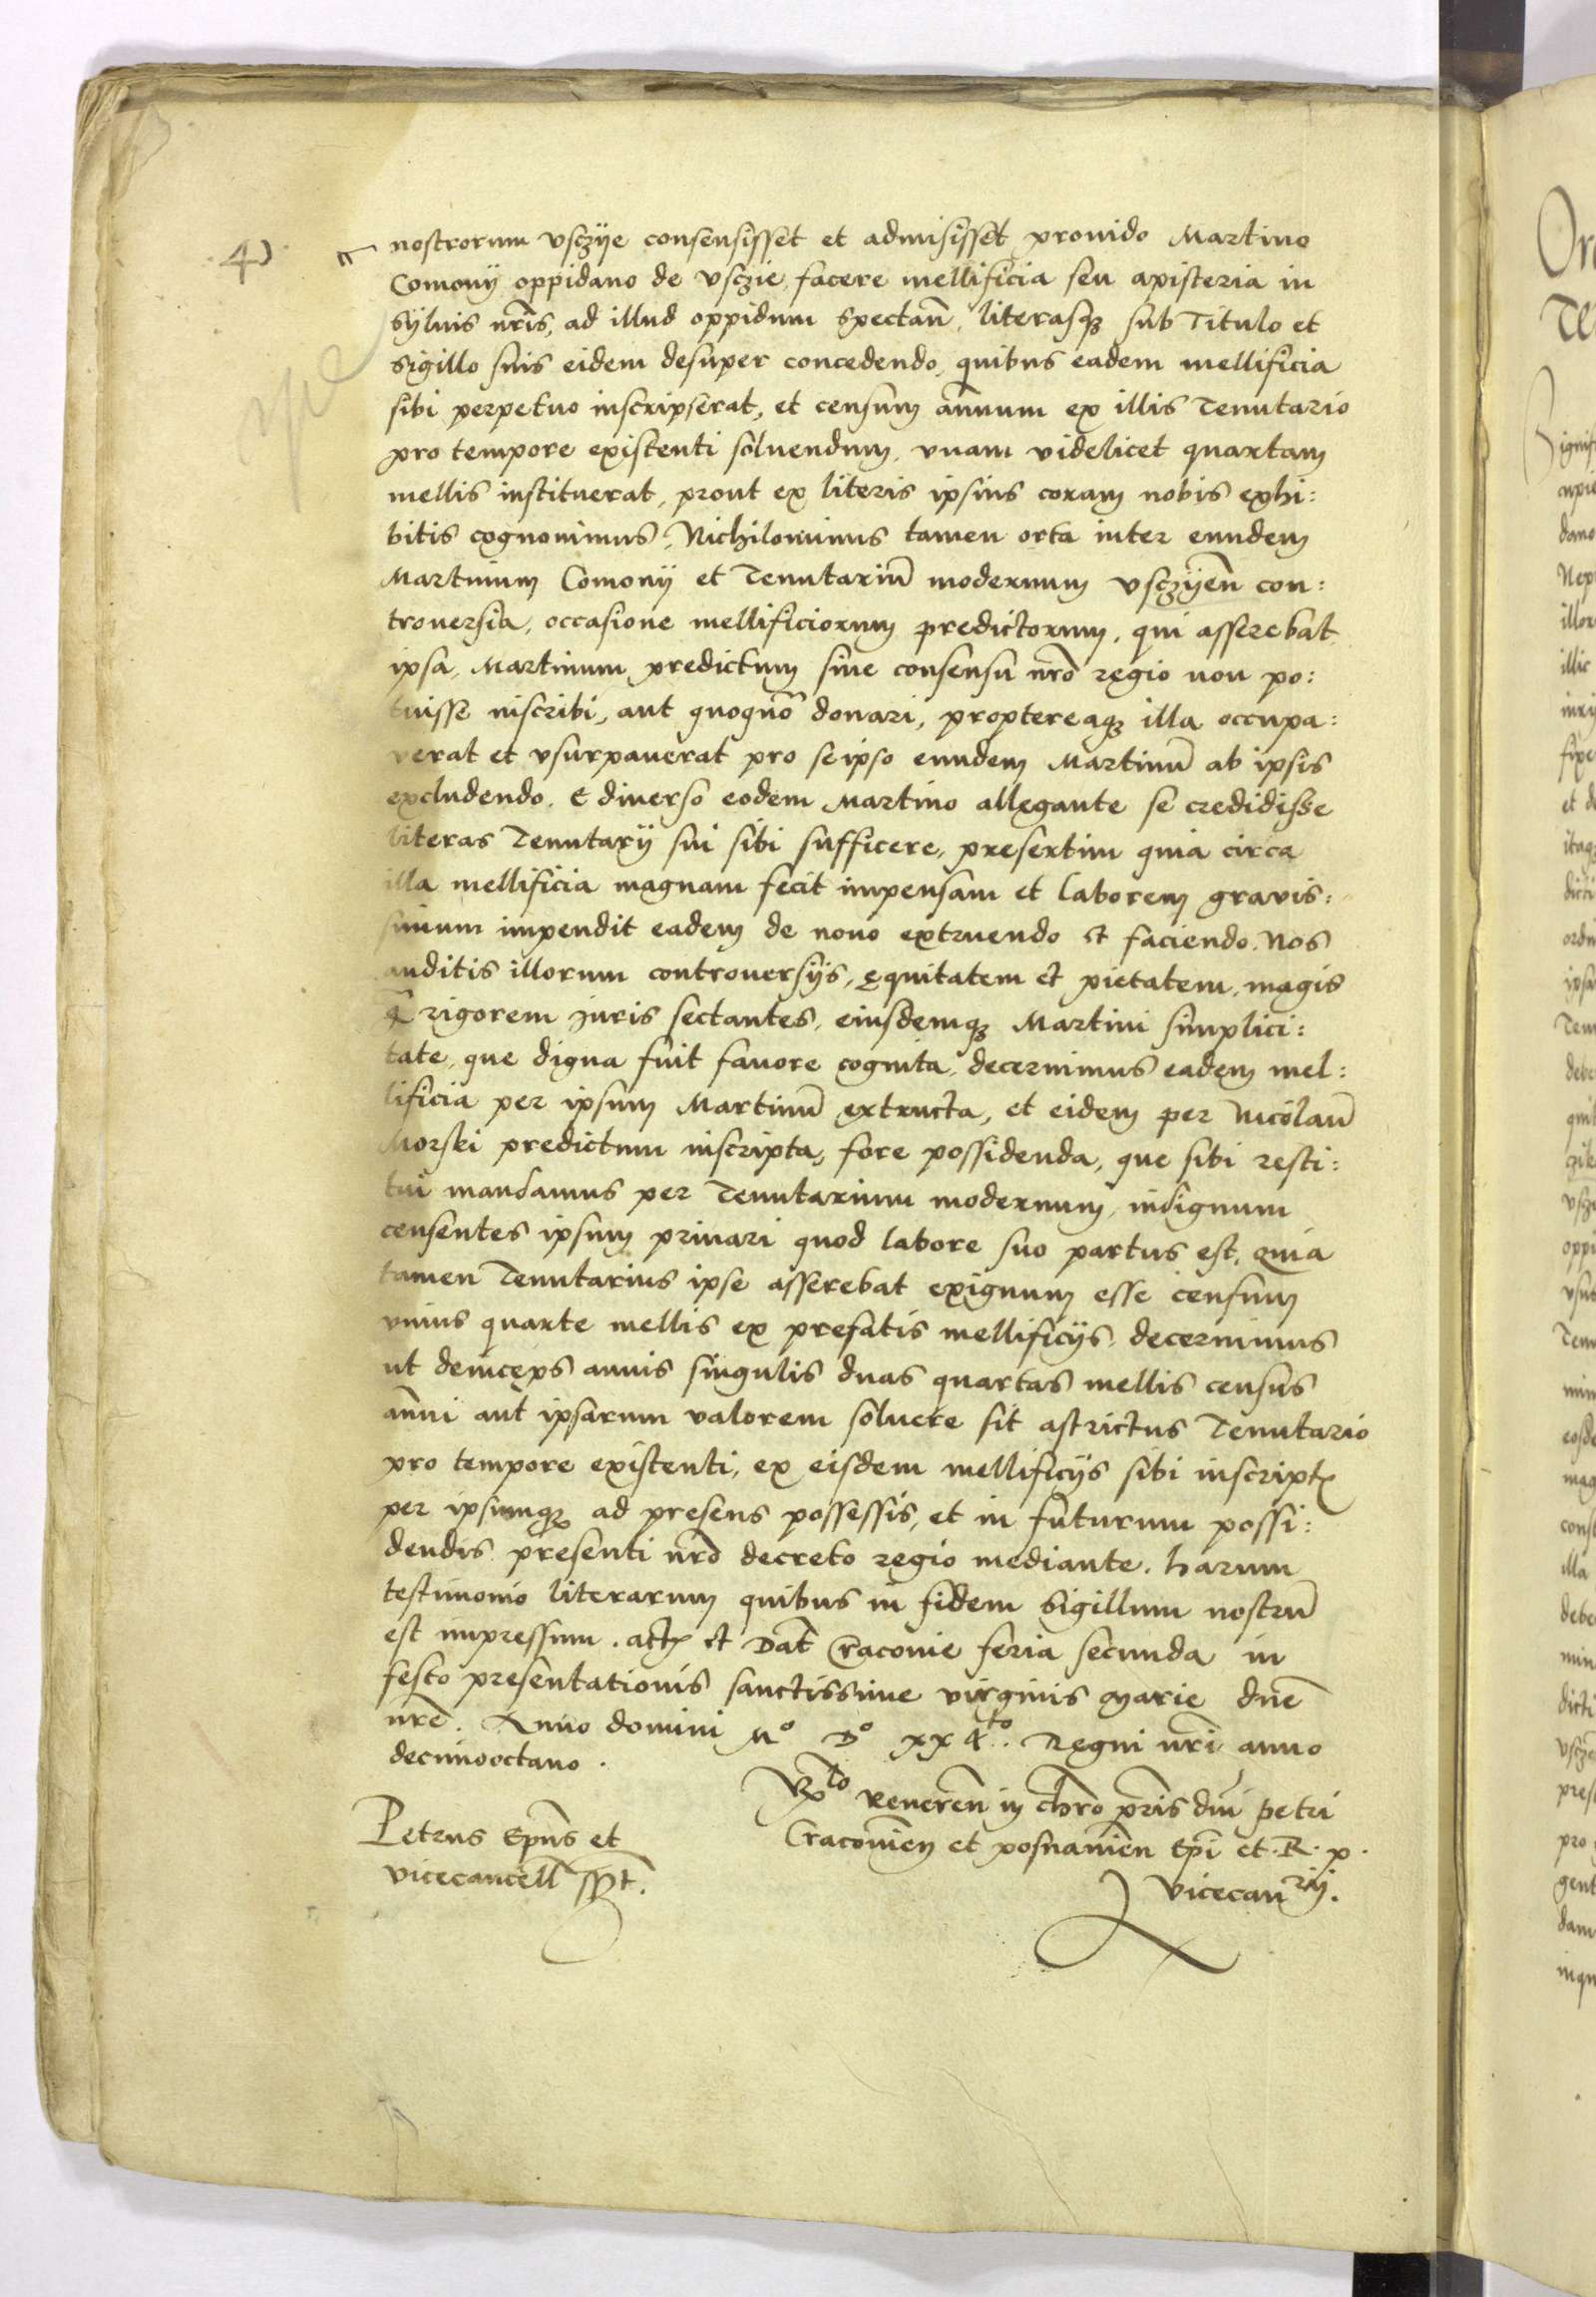 4
nostrorum vsczye consensisset et admisisset prouido Martino
Comonÿ oppidano de vsczie facere mellificia seu apisteria in
syluis nr̃is, ad illud oppidum spectañ, literasqꝫ sub Titulo et
sigillo suis eidem desuper concedendo, quibus eadem mellificia
sibi perpetuo inscripserat, et censum añuum ex illis Tenutario
pro tempore existenti soluendum, vnam videlicet quartam
mellis instituerat, prout ex literis ipsius coram nobis exhi:
bitis cognouimus, Nichilominus tamen orta inter eundem
Martinum Comonÿ et Tenutariũ modernum vsczyeñ con:
trouersia, occasione mellificiorum predictorum, qui asserebat
ipsa, Martinum predictum sine consensu nr̃o regio non po:
tuisse inscribi, aut quoquõ donari, proptereaqꝫ illa occupa:
verat et vsurpauerat pro seipso eundem Martinũ ab ipsis
excludendo. E diuerso eodem Martino allegante se credidisse
literas Tenutarÿ sui sibi sufficere, presertim quia circa
illa mellificia magnam fecit impensam et laborem grauis:
simum impendit eadem de nouo extruendo et faciendo. Nos
auditis illorum controuersÿs, ęquitatem et pietatem, magis
q̃ rigorem Juris sectantes, eiusdemqꝫ Martini simplici:
tate, que digna fuit fauore cognita, decernimus eadem mel:
lificia per ipsum Martinũ extructa, et eidem per Nicolaũ
Morski predictum inscripta, fore possidenda, que sibi resti:
tui mandamus per Tenutarium modernum, indignum
censentes ipsum priuari quod labore suo partus est, Quia
tamen Tenutarius ipse asserebat exiguum esse censum
vnius quarte mellis ex prefatis mellificÿs, decernimus
ut deinceps annis singulis duas quartas mellis census
añui aut ipsarum valorem soluere sit astrictus Tenutario
pro tempore existenti, ex eisdem mellificÿs sibi inscriptꝭ
per ipsumqꝫ ad presens possessis, et in futurum possi:
dendis presenti nr̃o decreto regio mediante. Harum
testimonio literarum quibus in fidem Sigillum nostrũ
est impressum. actꝭ et Dat̃ Cracouie feria secunda in
festo presentationis sanctissime virginis Marie dñe
nr̃e. Anno domini Mº Dº xx 4to. Regni nr̃i anno
decimooctauo.
Petrus Ep̃us et
vicecancell̃ sspt̃.
Rx̃to Reuereñ in chr̃o pr̃is dñi Petri
Cracouieñ et posnanieñ Ep̃i et. R. p.
vicecanrÿ.